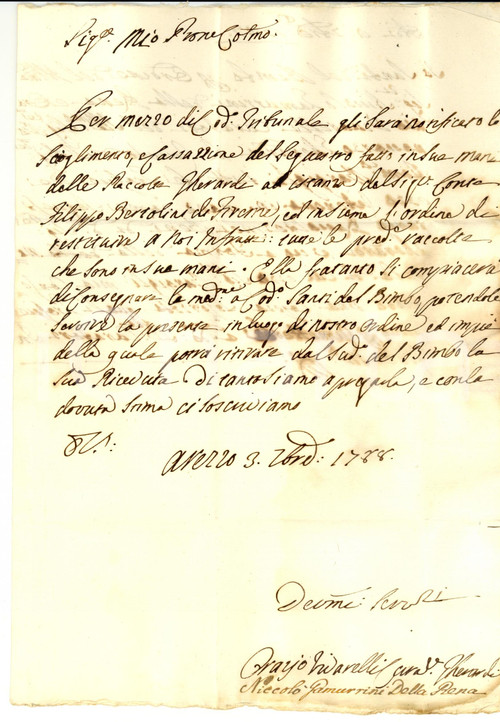 Sig.re Mio Prone Colmo.
Per mezzo di Cod.o Tribunale gli sarà notificato lo
scoglimento, e Cassazzione del Sequestro fatto in sue mani
delle Raccolte Gherardi ad istanza del Sig.r Conte
Filippo Bertolini di Firenze, ed insieme l'ordine di
restituire a Noi Infratti: tutte le pred.e raccolte
che sono in sue mani. Ella fratanto si compiacerà
di consegnare le med.me a Cod.o Santi del Bimbo, potendole
servire la presente in luogo di nostro ordine ed in piè
della quale potrà ritirare dal Sud.o del Bimbo la
sua Riceuta Di tanto siamo a pregarla, e con la
dovuta stima ci soscriviamo
Arezzo 3. Xbre: 1788.
Devmi: Serv.ri
Orazio Curat.e Gherardi
Niccolò Gamurrini Della Rena